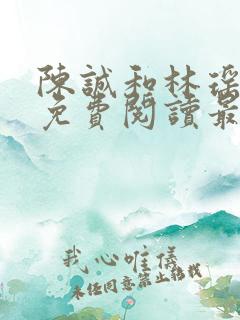 陳誠和林瑤
免費閱讀最
我心唯儀
未经同意禁止转载